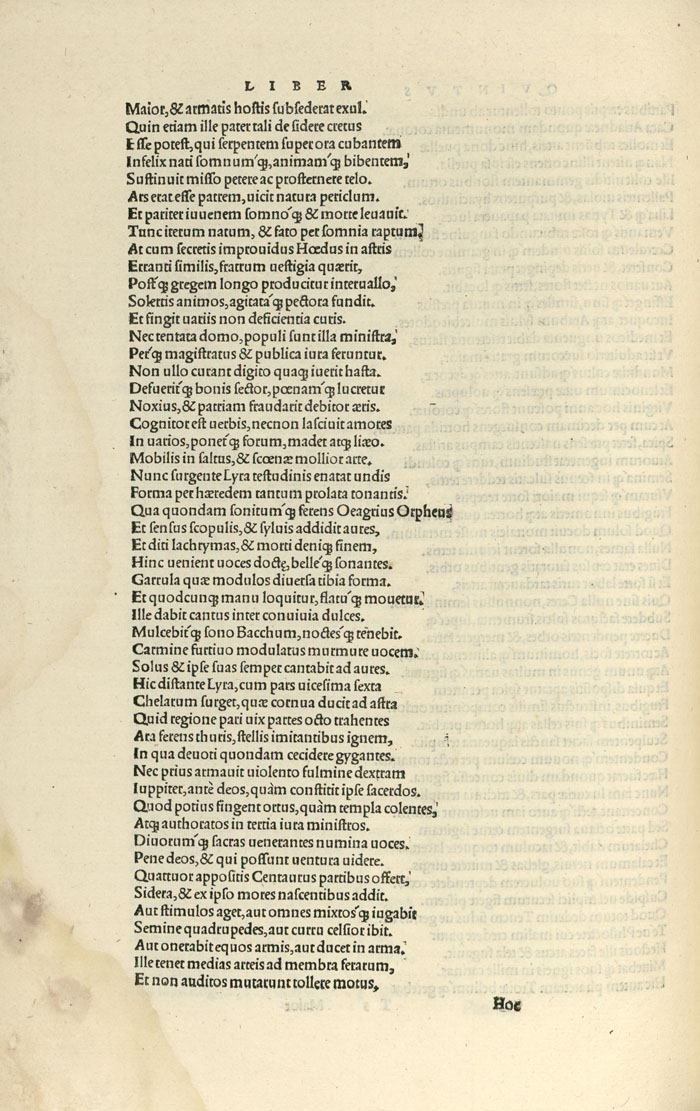 LIBER
Maior, & armatis hostis subsederat exul.
Quin etiam ille pater tali de sidere cretus
Esse potest, qui serpentem super ora cubantem
Infelix nati somnumq́;, animamq́; bibentem,
Sustinuit misso petere ac prosternere telo.
Ars erat esse patrem, uicit natura periclum.
Et pariter iuuenem somnoq́; & morte leuauit.
Tunc iterum natum, & fato per somnia raptum,
At cum secretis improuidus Hœdus in astris
Erranti similis, fratrum uestigia quærit,
Postq́; gregem longo producitur interuallo,
Solertis animos, agitataq́; pectora fundit.
Et fingit uariis non deficientia curis.
Nec tentata domo, populi sunt illa ministra,
Perq́; magistratus & publica iura feruntur.
Non ullo curant digito quaq; iuerit hasta.
Defueritq́; bonis sector, pœnamq́; lucretur
Noxius, & patriam fraudarit debitor æris.
Cognitor est uerbis, necnon lasciuit amores
In uarios, ponetq́; forum, madet atq; liæo.
Mobilis in saltus, & scœnæ mollior arte.
Nunc surgente Lyra testudinis enatat undis
Forma per hæredem tantum prolata tonantis.
Qua quondam sonitumq́; ferens Oeagrius Orpheus
Et sensus scopulis, & syluis addidit aures,
Et diti lachrymas, & morti deniq; finem,
Hinc uenient uoces doctę, belleq́; sonantes.
Garrula quæ modulos diuersa tibia forma.
Et quodcunq; manu loquitur, flatuq́; mouetur.
Ille dabit cantus inter conuiuia dulces.
Mulcebitq́; sono Bacchum, noctesq́; tenebit.
Carmine furtiuo modulatus murmure uocem.
Solus & ipse suas semper cantabit ad aures.
Hic distante Lyra, cum pars uicesima sexta
Chelarum surget, quæ cornua ducit ad astra
Quid regione pari uix partes octo trahentes
Ara ferens thuris, stellis imitantibus ignem,
In qua deuoti quondam cecidere gygantes.
Nec prius armauit uiolento fulmine dextram
Iuppiter, antè deos, quàm constitit ipse sacerdos.
Quod potius fingent ortus, quàm templa colentes,
Atq; authoratos in tertia iura ministros.
Diuorumq́; sacras uenerantes numina uoces.
Pene deos, & qui possunt uentura uidere.
Quattuor appositis Centaurus partibus offert,
Sidera, & ex ipso mores nascentibus addit.
Aut stimulos aget, aut omnes mixtosq́; iugabit
Semine quadrupedes, aut curru celsior ibit.
Aut onerabit equos armis, aut ducet in arma.
Ille tenet medias arteis ad membra ferarum,
Et non auditos mutarunt tollere motus,
Hoc